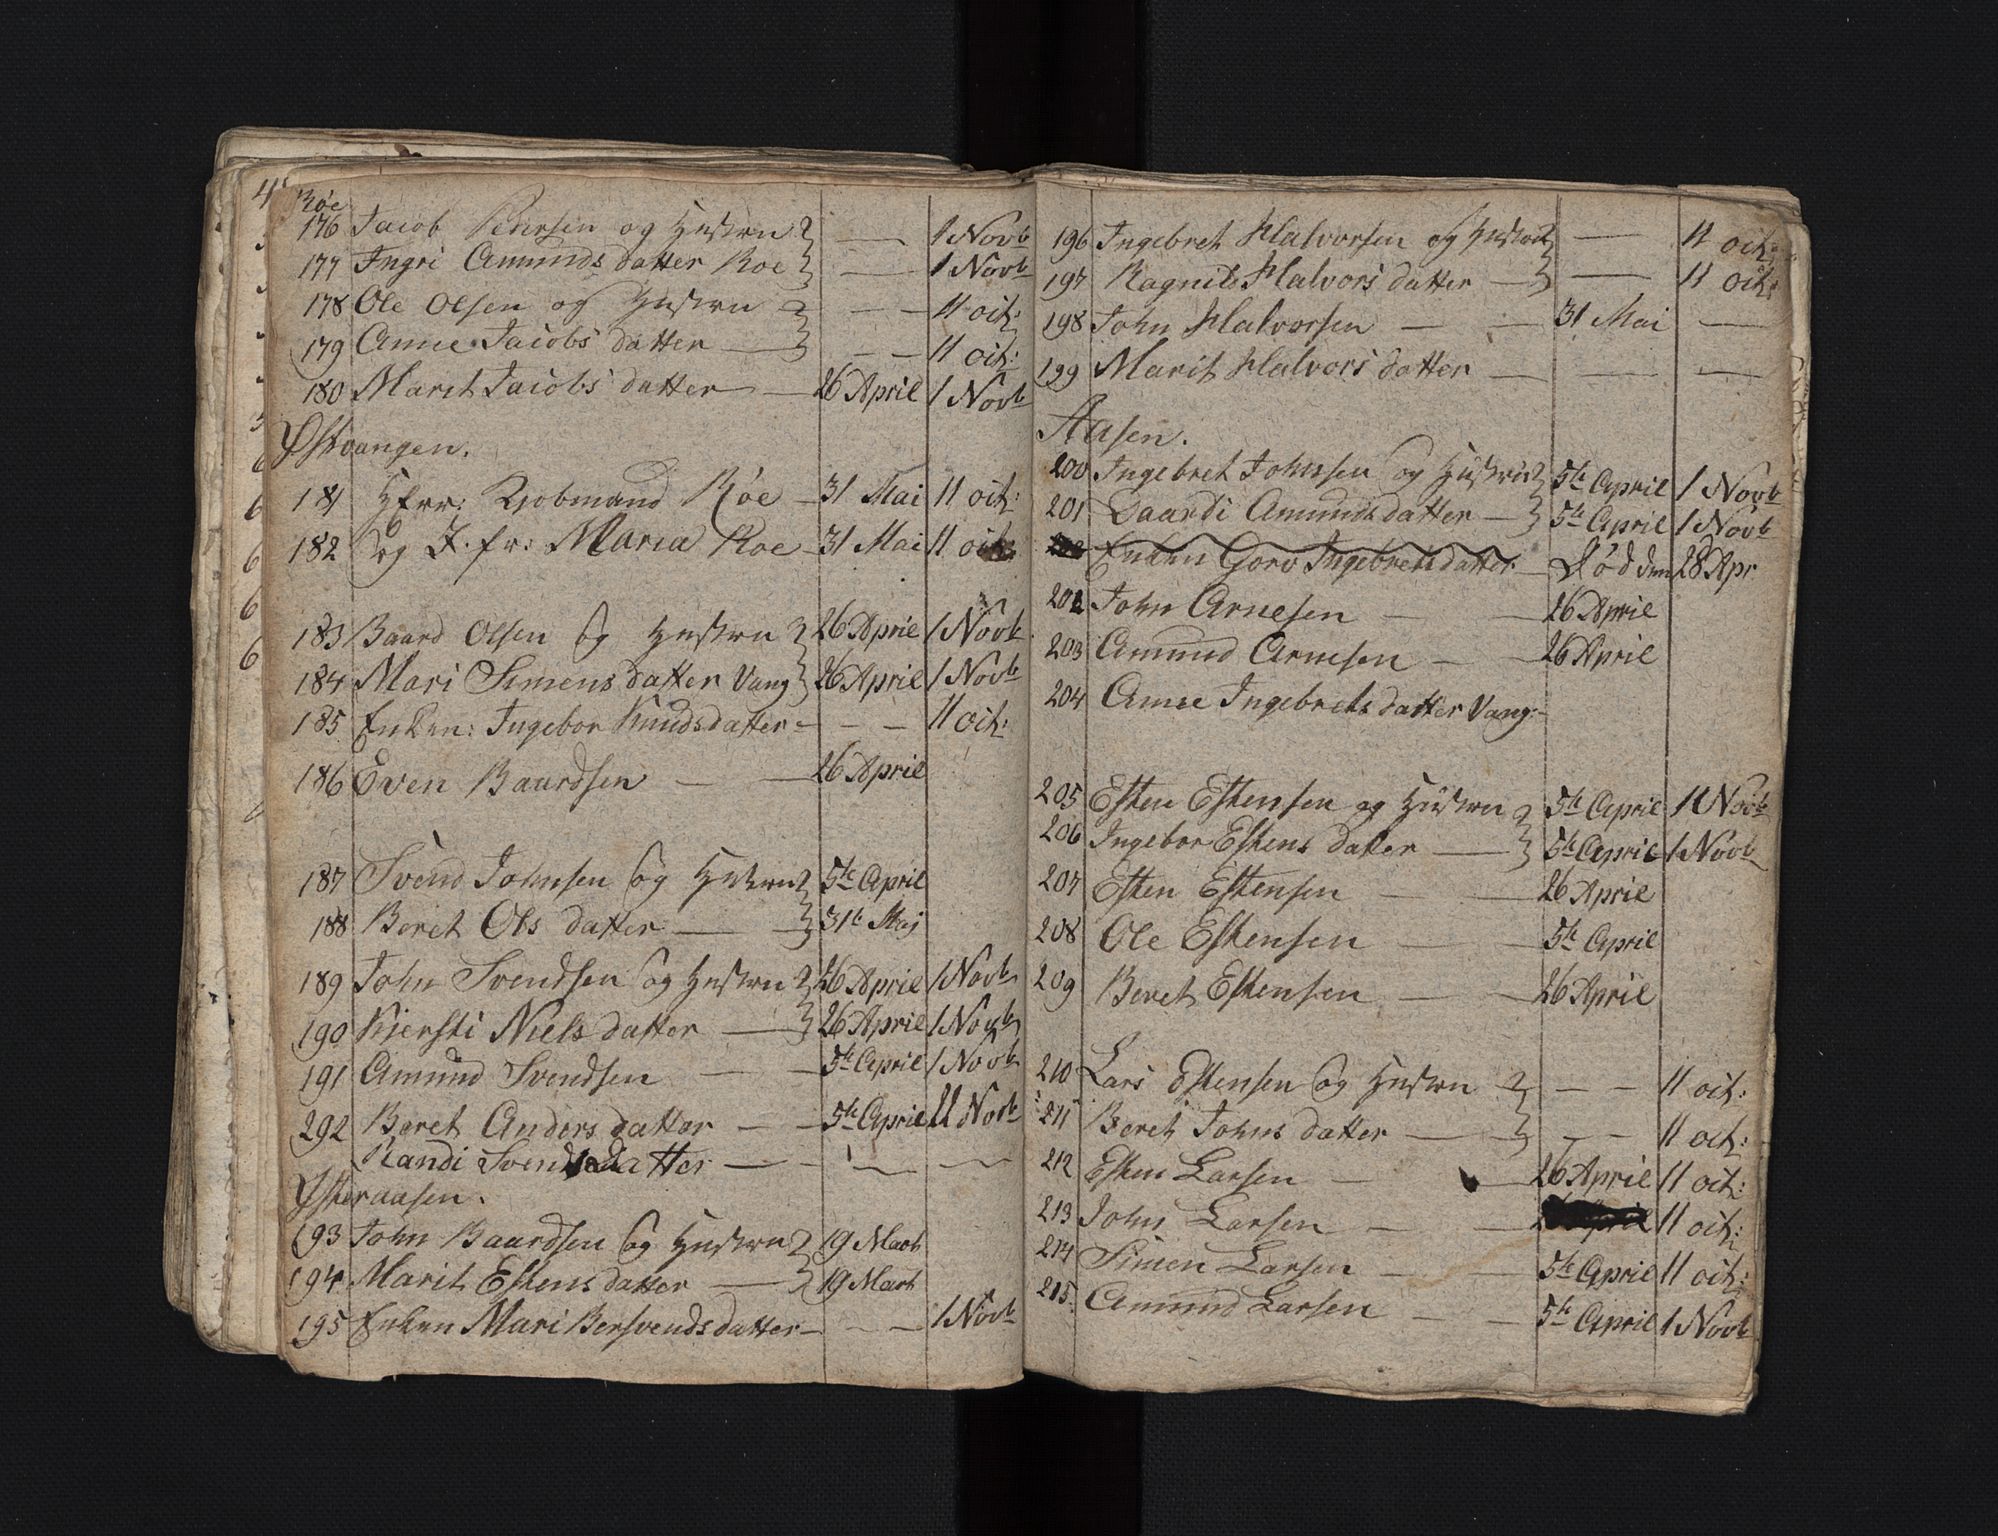 Roe
176 Jacob Pedersen og Hustru — 1 Novb
177 Ingri Amunds datter Roe — 1 Novb
178 Ole Olsen og Hustru — — 11 oct:
179 Anne Jacobs datter — — — 11 oct:
180 Marit Jacobs datter — 26 April 1 Novb
Østvangen.
181 Herr: Kjobmand Røe — 31 Mai 11 oct:
182 og J. fr: Maria Roe — 31 Mai 11 oct:
183 Baard Olsen Og Hustru 26 April 1 Novb
184 Mari Simens datter Vang 26 April 1 Novb
185 Enken: Ingebor Knudsdatter — — — 11 oct:
186 Even Baardsen — — 26 April
187 Svend Johnsen Og Hustru 5te April
188 Beret Ols datter — — 31te Maj
189 John Svendsen Og Hustru 26 April 1 Novb
190 Kjersti Niels datter — 26 April 1 Novb
191 Amund Svendsen — — 5te April 1 Novb
292 Beret Anders datter — — 5te April 11 Novb
Randi Svends datter — — — — —
Østeraasen.
193 John Baardsen Og Hustru 19 Marts
194 Marit Estens datter — 19 Marts
195 Enken Mari Bersvends datter — — — 1 Novb
196 Ingebret Halvorsen og Hustru — 11 oct:
197 Ragnil Halvors datter — — 11 oct:
198 John Halvorsen — — 31 Mai —
199 Marit Halvors datter — — — —
Aasen.
200 Ingebret Johnsen Og Hustru 5te April 1 Novb
201 Baardi Amunds datter — 5te April 1 Novb
Enken Goro Ingebrets datter — Død den 28 Apr
202 John Arnesen — — 26 April
203 Amund Arnesen — — 26 April
204 Anne Ingebrets datter Vang: —
205 Esten Estensen og Hustru 5te April 1 Novb
206 Ingebor Estens datter — 5te April 1 Novb
207 Esten Estensen — — 26 April
208 Ole Estensen — — 5te April
209 Beret Estensen — — 26 April
210 Lars Estensen Og Hustru — — 11 oct:
211 Beret Johns datter — — — 11 oct:
212 Esten Larsen — — 26 April 11 oct:
213 John Larsen — — 11 oct:
214 Simen Larsen — — 5te April 11 oct:
215. Amund Larsen — — 5te April 1 Novb